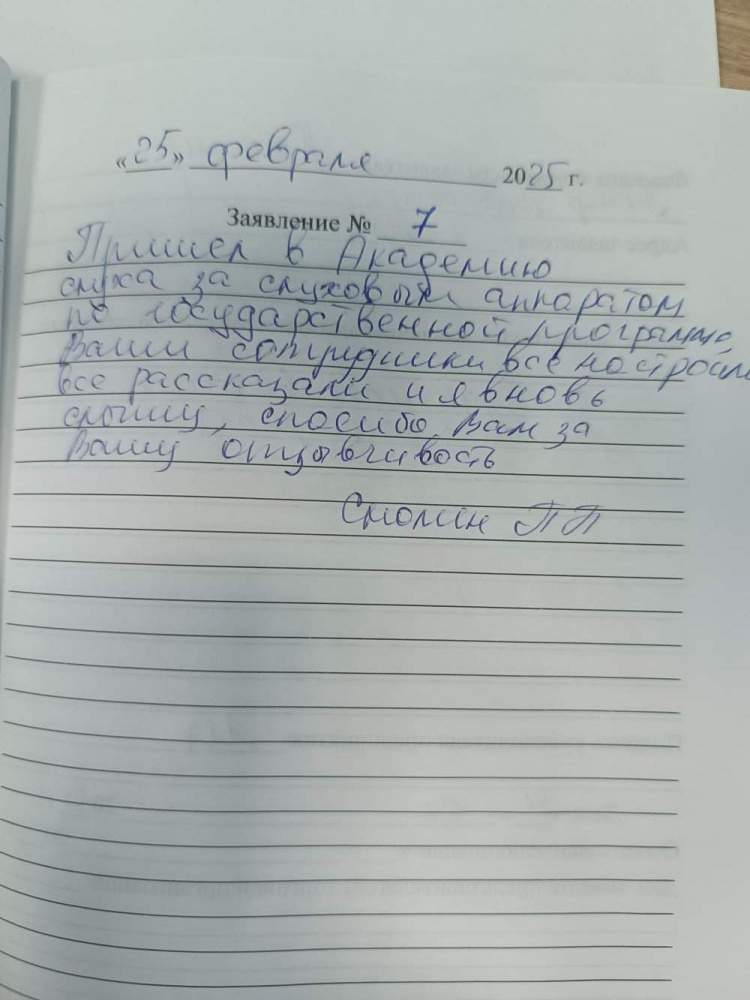 «25» февраля 2025 г.
Заявление № 7
Пришел в Академию
слуха за слуховым аппаратом
по государственной программе,
Ваши сотрудники все настроили
все рассказали и я вновь
слышу, спасибо Вам за
Вашу отзывчивость
Смолин ПП